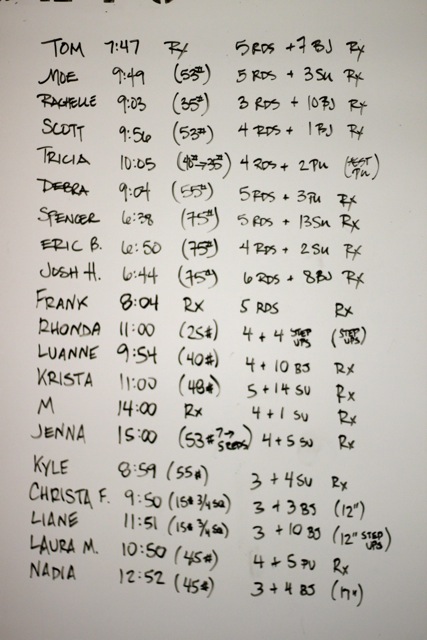 TOM 7:47 Rx 5 RDS + 7 BJ Rx
MOE 9:49 (53#) 5 RDS + 3 SU Rx
RACHELLE 9:03 (35#) 3 RDS + 10 BJ Rx
SCOTT 9:56 (53#) 4 RDS + 1 BJ Rx
TRICIA 10:05 4 RDS + 2 PU
DEBRA 9:04 (55#) 5 RDS + 3 PU Rx
SPENCER 6:38 (75#) 5 RDS + 13 SU Rx
ERIC B. 6:50 (75#) 4 RDS + 2 SU Rx
JOSH H. 6:44 (75#) 6 RDS + 8 BJ Rx
FRANK 8:04 Rx 5 RDS Rx
RHONDA 11:00 (25#) 4 + 4 STEP UPS (STEP UPS)
LUANNE 9:54 (40#) 4 + 10 BJ Rx
KRISTA 11:00 (48#) 5 + 14 SU Rx
M 14:00 Rx 4 + 1 SU Rx
JENNA 15:00 (53# 4 + 5 SU Rx
KYLE 8:59 (55#) 3 + 4 SU Rx
CHRISTA F. 9:50 (15# 3/4 SQ) 3 + 3 BJ (12")
LIANE 11:51 (15# 3/4 SQ) 3 + 10 BJ (12" STEP UPS)
LAURA M. 10:50 (45#) 4 + 5 PU Rx
NADIA 12:52 (45#) 3 + 4 BJ